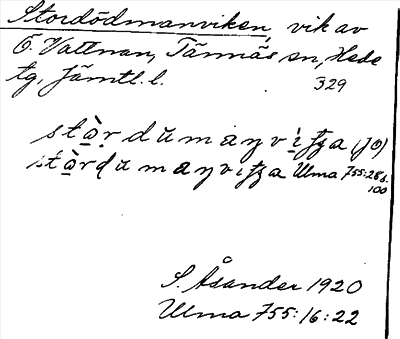 Stordödmanviken, vik av
Ö. Vattnan, Tännäs sn, Hede
tg, Jämtl. l.
329
stɑ̀r dŭ m a ŋ v i ʃʒa (JO)
stɑ̀rdŭ m a ŋ v i ʃʒa Ulma 755:28 s.
100
S. Åsander 1920
Ulma 755:16:22